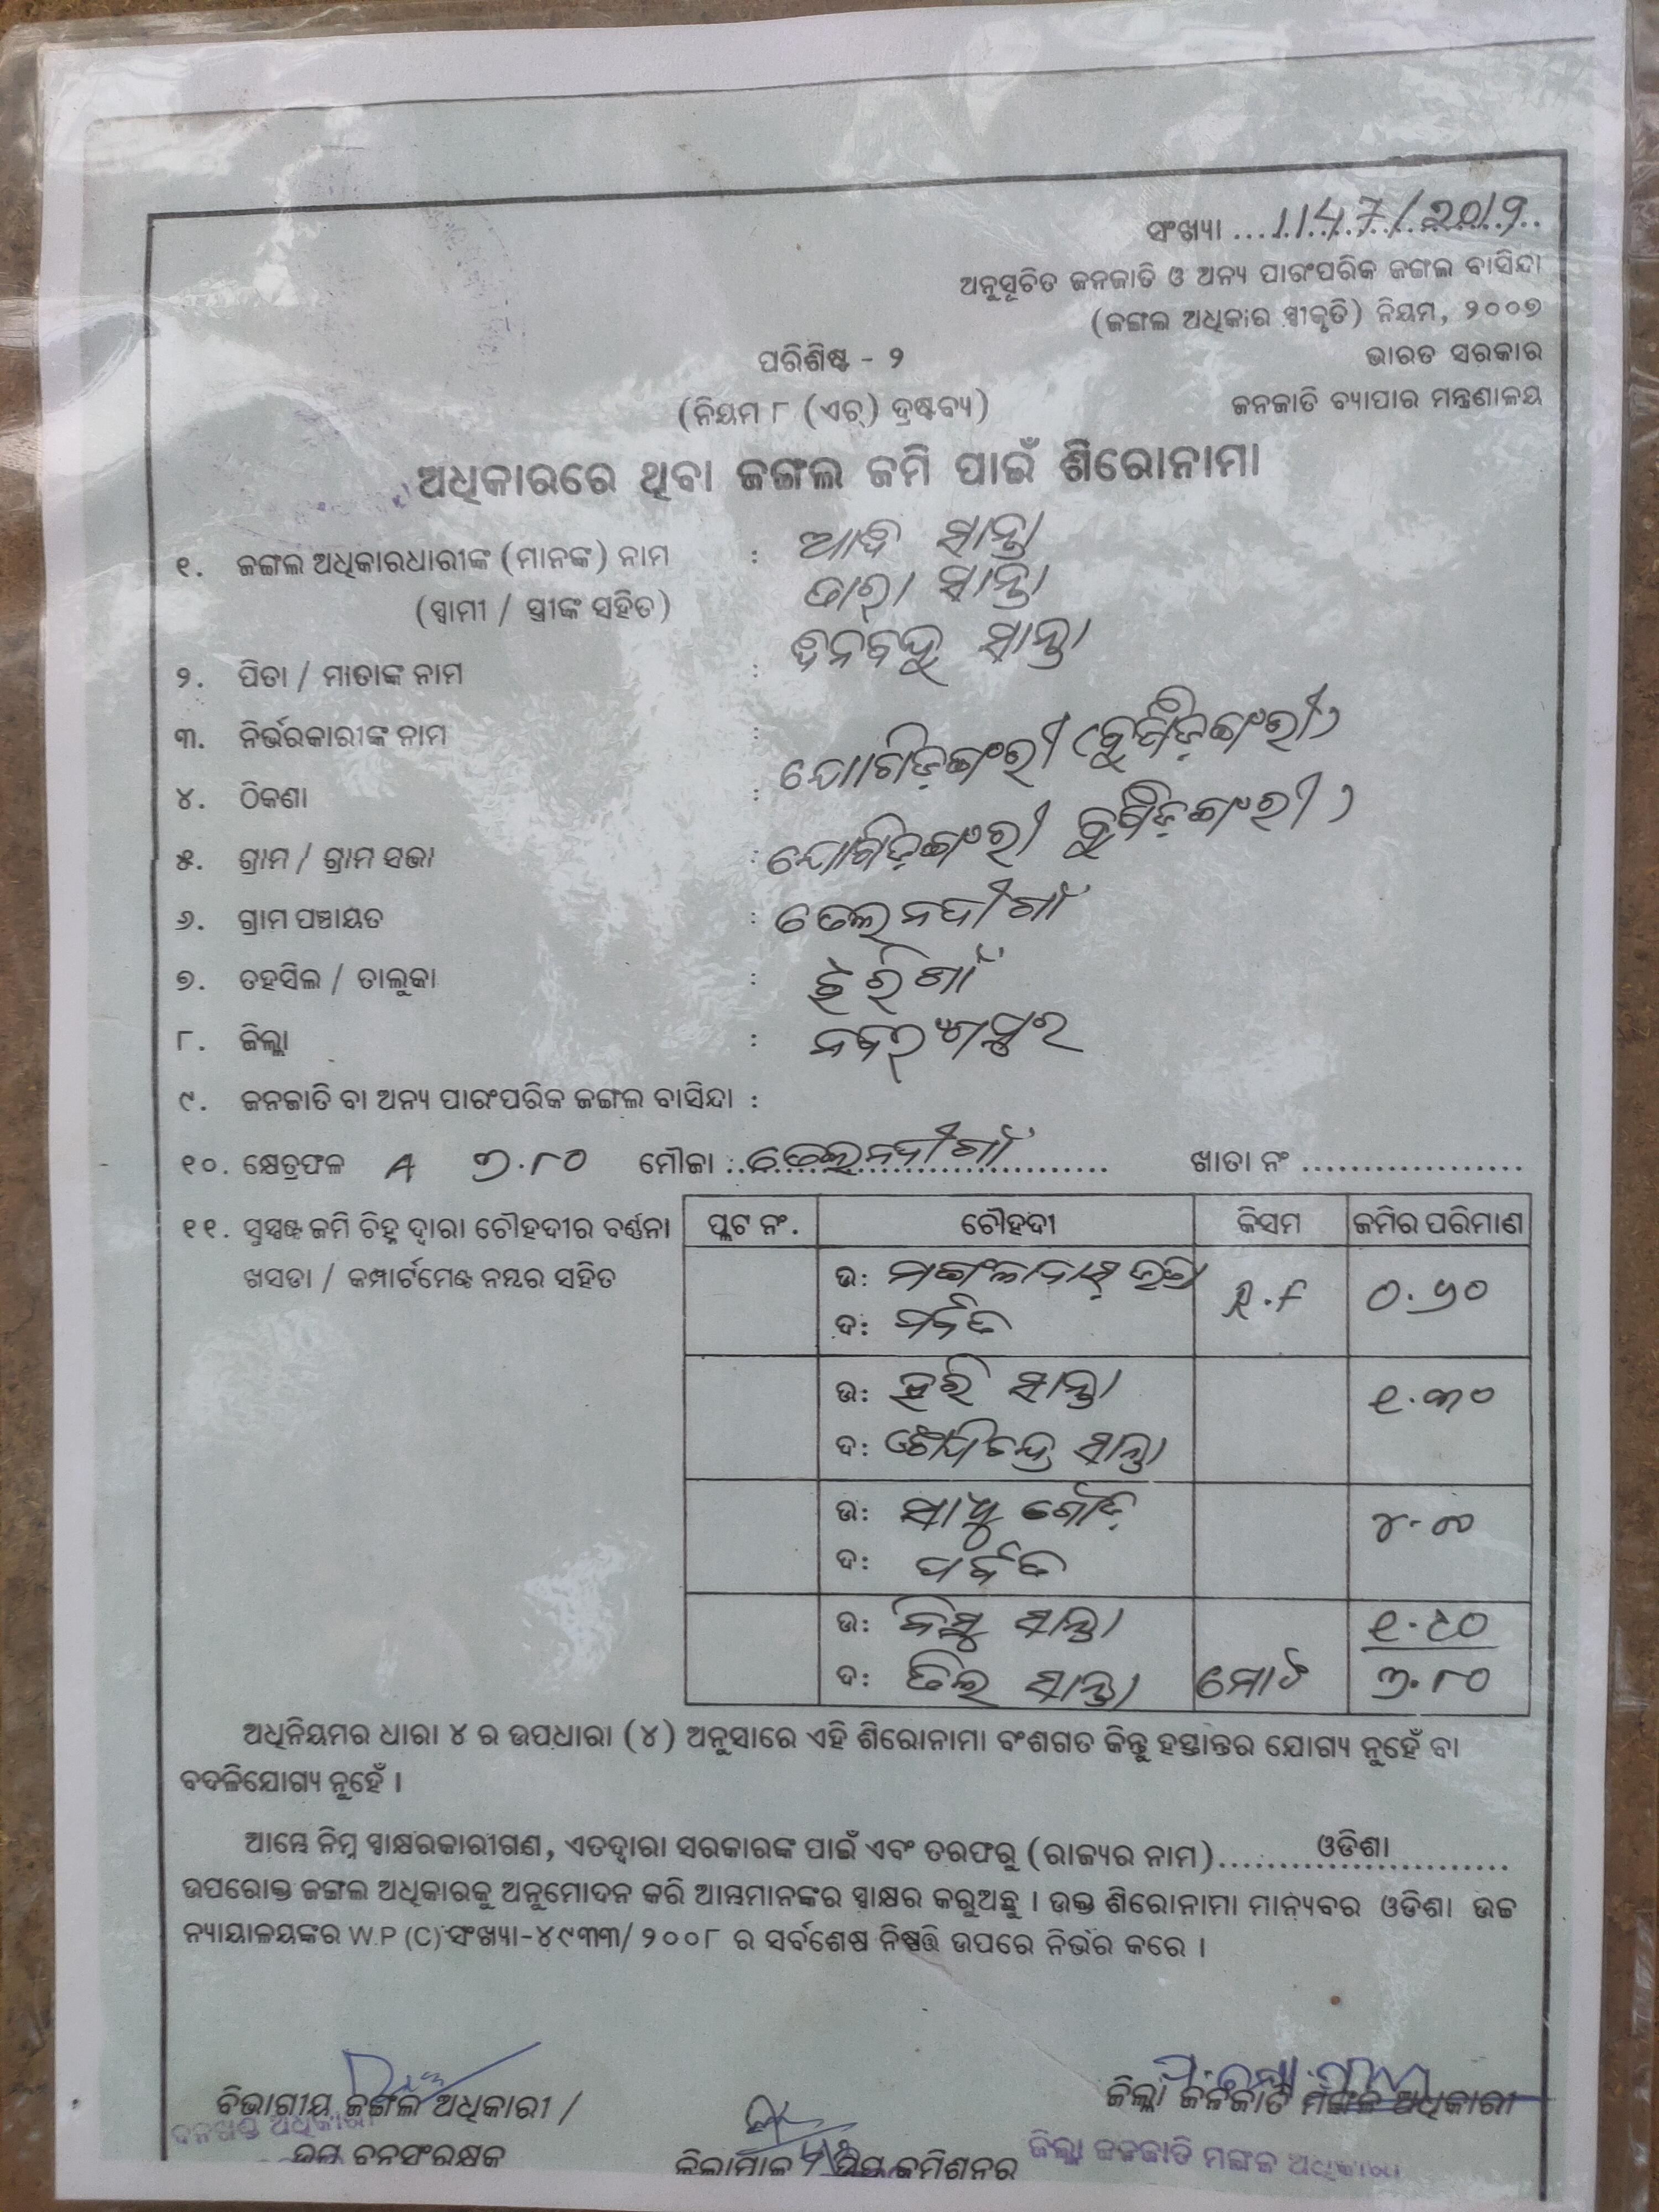 ସଂଖ୍ୟା ....1147/2019..
ଅନୁସୂଚିତ ଜନଜାତି ଓ ଅନ୍ୟ ପାରଂପରିକ ଜଙ୍ଗଲ ବାସିନ୍ଦା
(ଜଙ୍ଗଲ ଅଧିକାର ସ୍ୱୀକୃତି) ନିୟମ, ୨୦୦୭
ପରିଶିଷ୍ଟ - ୨
ଭାରତ ସରକାର
(ନିୟମ ୮ (ଏଚ୍) ଦ୍ରଷ୍ଟବ୍ୟ)
ଜନଜାତି ବ୍ୟାପାର ମନ୍ତ୍ରଣାଳୟ
ଅଧିକାରରେ ଥିବା ଜଙ୍ଗଲ ଜମି ପାଇଁ ଶିରୋନାମା
୧. ଜଙ୍ଗଲ ଅଧିକାରଧାରୀଙ୍କ (ମାନଙ୍କ) ନାମ : ସାନ୍ତା
(ସ୍ୱାମୀ / ସ୍ତ୍ରୀଙ୍କ ସହିତ) ତାରା ସାନ୍ତା
୨. ପିତା / ମାତାଙ୍କ ନାମ : ସାନ୍ତା
୩. ନିର୍ଭରକାରୀଙ୍କ ନାମ :
୪. ଠିକଣା :
୫. ଗ୍ରାମ / ଗ୍ରାମ ସଭା :
୬. ଗ୍ରାମ ପଞ୍ଚାୟତ : ତେଲନଦୀଗାଁ
୭. ତହସିଲ / ତାଲୁକା : ଝରିଗାଁ
୮. ଜିଲ୍ଲା : ନବରଂଗପୁର
୯. ଜନଜାତି ବା ଅନ୍ୟ ପାରଂପରିକ ଜଙ୍ଗଲ ବାସିନ୍ଦା :
୧୦. କ୍ଷେତ୍ରଫଳ A ୭.୮୦ ମୌଜା ..ତେଲନଦୀଗାଁ...... ଖାତା ନଂ ..................
୧୧. ସୁସ୍ପଷ୍ଟ ଜମି ଚିହ୍ନ ଦ୍ୱାରା ଚୌହଦୀର ବର୍ଣ୍ଣନା
ଖସଡା / କମ୍ପାର୍ଟମେଣ୍ଟ ନମ୍ବର ସହିତ
ପ୍ଲଟ ନଂ. ଚୌହଦୀ କିସମ ଜମିର ପରିମାଣ
ଉ: R.F ୦.୬୦
ଦ: ପର୍ବତ
ଉ: ହରି ସାନ୍ତା ୧.୩୦
ଦ: ସାନ୍ତା
ଉ: ସାଧୁ ଗୌଡ଼ ୪.୦୦
ଦ: ପର୍ବତ
ଉ: ସାନ୍ତା ୧.୯୦
ଦ: ସାନ୍ତା ମୋଟ ୭.୮୦
ଅଧିନିୟମର ଧାରା ୪ ର ଉପଧାରା (୪) ଅନୁସାରେ ଏହି ଶିରୋନାମା ବଂଶଗତ କିନ୍ତୁ ହସ୍ତାନ୍ତର ଯୋଗ୍ୟ ନୁହେଁ ବା
ବଦଳିଯୋଗ୍ୟ ନୁହେଁ ।
ଆମ୍ଭେ ନିମ୍ନ ସ୍ୱାକ୍ଷରକାରୀଗଣ, ଏତଦ୍ୱାରା ସରକାରଙ୍କ ପାଇଁ ଏବଂ ତରଫରୁ (ରାଜ୍ୟର ନାମ)........ଓଡିଶା..........
ଉପରୋକ୍ତ ଜଙ୍ଗଲ ଅଧିକାରକୁ ଅନୁମୋଦନ କରି ଆମ୍ଭମାନଙ୍କର ସ୍ୱାକ୍ଷର କରୁଅଛୁ । ଉକ୍ତ ଶିରୋନାମା ମାନ୍ୟବର ଓଡିଶା ଉଚ୍ଚ
ନ୍ୟାୟାଳୟଙ୍କର W.P (C) ସଂଖ୍ୟା-୪୯୩୩/୨୦୦୮ ର ସର୍ବଶେଷ ନିଷ୍ପତ୍ତି ଉପରେ ନିର୍ଭର କରେ ।
ବିଭାଗୀୟ ଜଙ୍ଗଲ ଅଧିକାରୀ /
ଜିଲ୍ଲା ଜନଜାତି ମଙ୍ଗଳ ଅଧିକାରୀ
ବନଖଣ୍ଡ ଅଧିକାରୀ
ଉପ ବନସଂରକ୍ଷକ
ଜିଲ୍ଲାପାଳ / ଉପ କମିଶନର
ଜିଲ୍ଲା ଜନଜାତି ମଙ୍ଗଳ ଅଧିକାରୀ